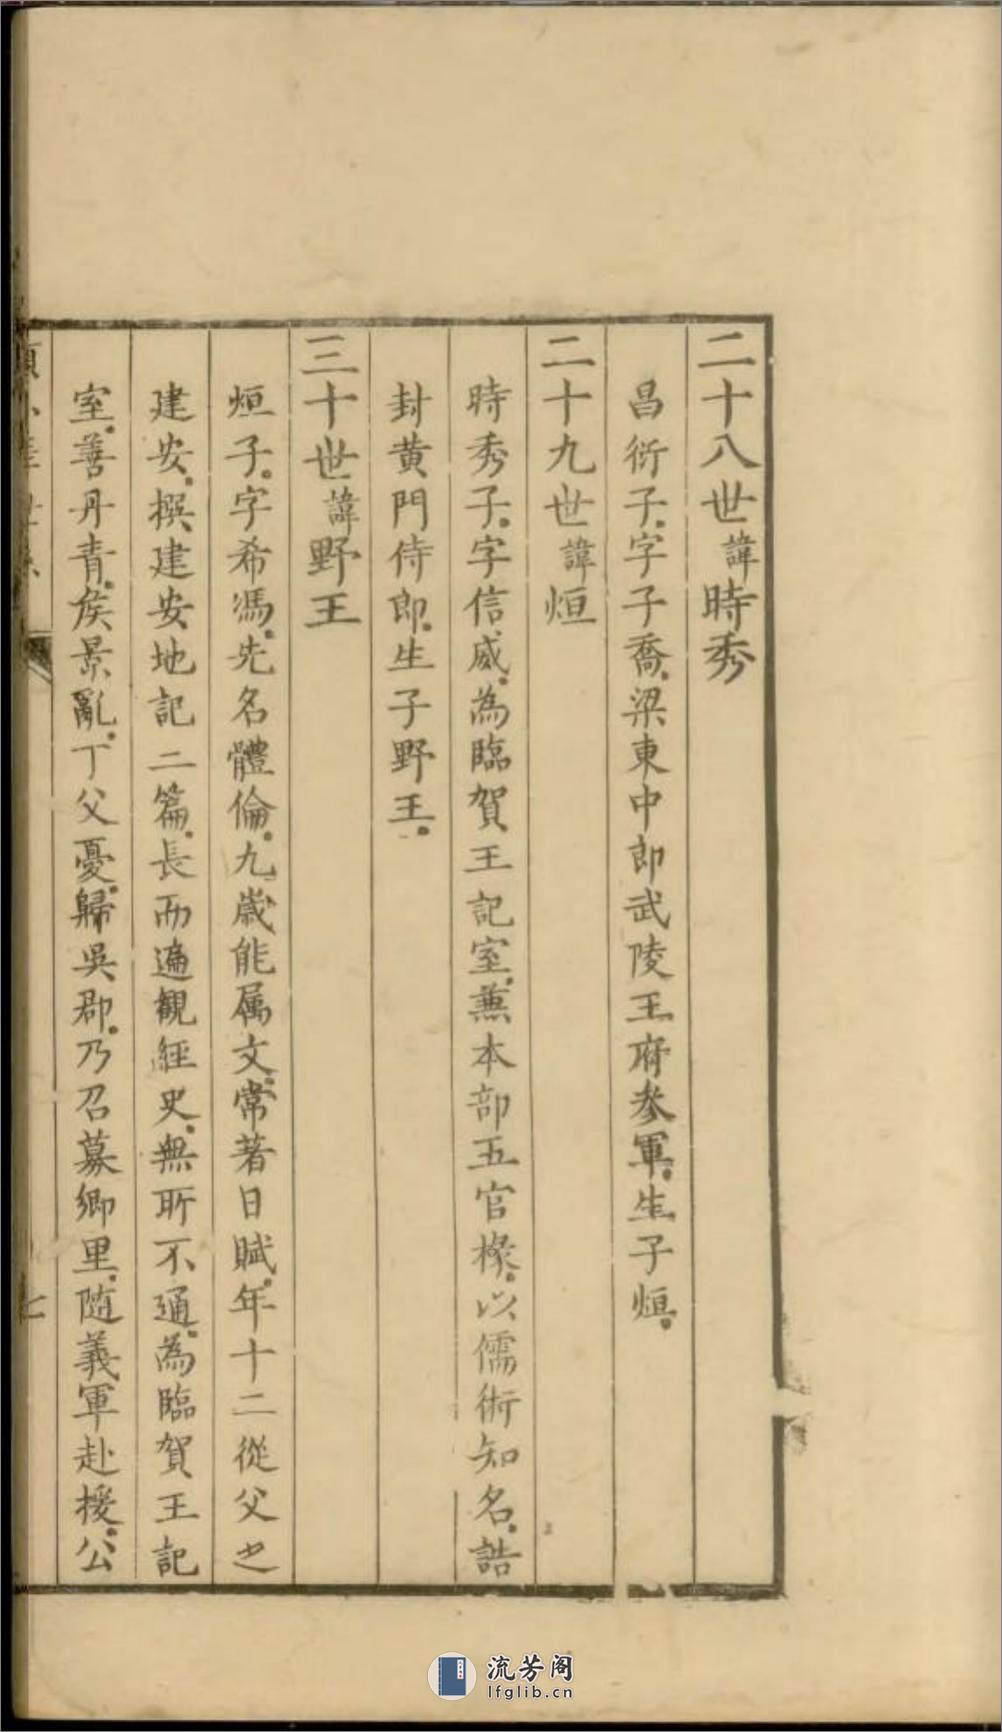 二十八世諱時秀
昌衍子字子喬梁東中郎武陵王府參軍生子烜
二十九世諱烜
時秀子字信威為臨賀王記室兼本部五官椽以儒術知名誥
封黄門侍郎生子野王
三十世諱野王
烜子字希馮先名體倫九歲能属文常著日賦年十二從父之
建安撰建安地記二篇長而遍觀經史無所不通為臨賀王記
室善丹青侯景亂丁父憂歸吳郡乃召募鄉里隨義軍赴援公
七
流芳阁
lfglib.cn